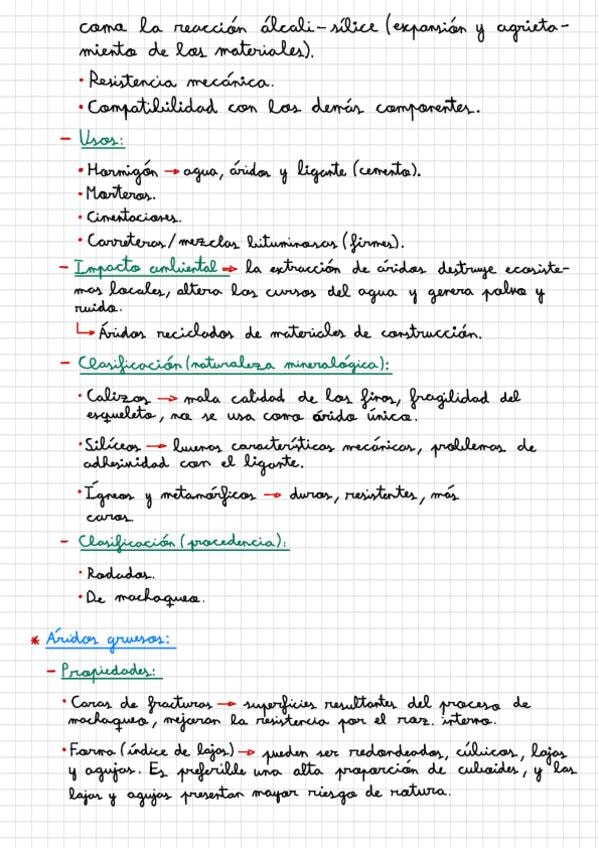 como la reacción álcali-sílice (expansión y agrieta-
miento de los materiales).
• Resistencia mecánica.
• Compatibilidad con los demás componentes.
- Usos:
• Hormigón → agua, áridos y ligante (cemento).
• Morteros.
• Cimentaciones.
• Carreteras/mezclas bituminosas (firmes).
- Impacto ambiental → la extracción de áridos destruye ecosiste-
mas locales, altera los cursos del agua y genera polvo y
ruido.
↳ Áridos reciclados de materiales de construcción.
- Clasificación (naturaleza mineralógica):
• Calizos → mala calidad de los finos, fragilidad del
esqueleto, no se usa como árido único.
• Silíceos → buenas características mecánicas, problemas de
adhesividad con el ligante.
• Ígneos y metamórficos → duros, resistentes, más
caros
- Clasificación (procedencia):
• Rodados.
• De machaqueo.
* Áridos gruesos:
- Propiedades:
• Caras de fracturas → superficies resultantes del proceso de
machaqueo, mejoran la resistencia por el roz. interno.
• Forma (índice de lajas) → pueden ser redondeados, cúbicos, lajas
y agujas. Es preferible una alta proporción de cuboides, y las
lajas y agujas presentan mayor riesgo de rotura.